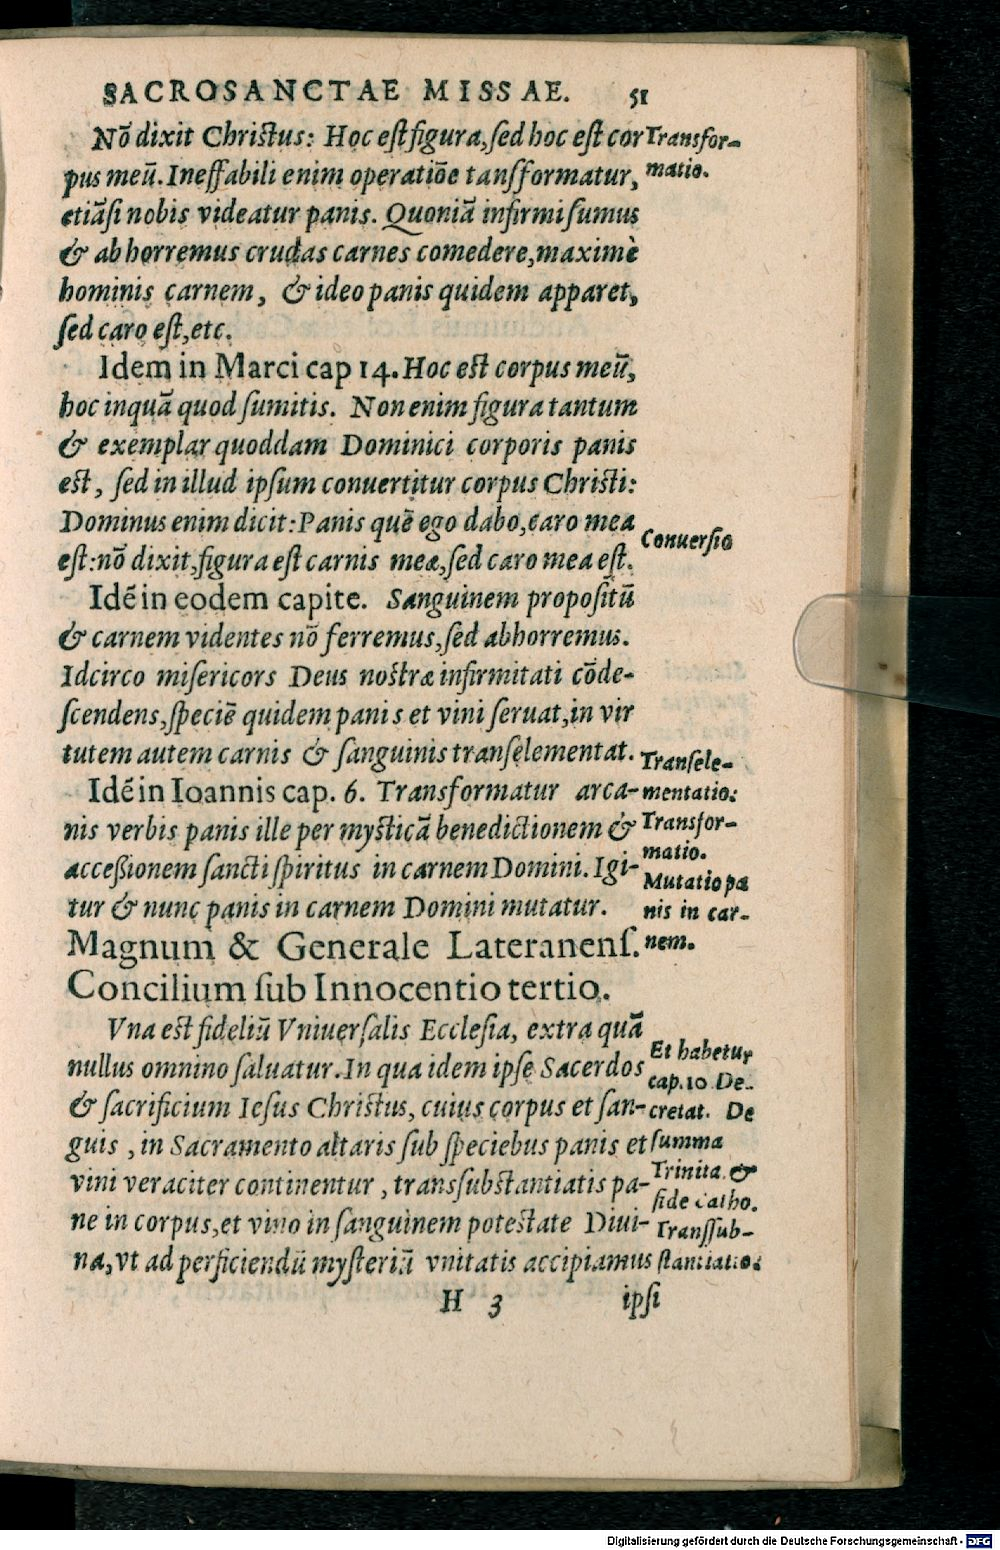 SACROSANCTAE MISSAE. 51
Nō dixit Christus: Hoc est figura, sed hoc est cor
pus meū. Ineffabili enim operatiōe tansformatur,
etiāsi nobis videatur panis. Quoniā infirmi sumus
& abhorremus crudas carnes comedere, maximè
hominis carnem, & ideo panis quidem apparet,
sed caro est, etc.
Idem in Marci cap 14. Hoc est corpus meū,
hoc inquā quod sumitis. Non enim figura tantum
& exemplar quoddam Dominici corporis panis
est, sed in illud ipsum conuertitur corpus Christi:
Dominus enim dicit: Panis quē ego dabo, caro mea
est: nō dixit, figura est carnis meæ, sed caro mea est.
Idē in eodem capite. Sanguinem propositū
& carnem videntes nō ferremus, sed abhorremus.
Idcirco misericors Deus nostræ infirmitati cōde-
scendens, speciē quidem panis et vini seruat, in vir
tutem autem carnis & sanguinis transelementat.
Idē in Ioannis cap. 6. Transformatur arca-
nis verbis panis ille per mysticā benedictionem &
accessionem sancti spiritus in carnem Domini. Igi-
tur & nunc panis in carnem Domini mutatur.
Magnum & Generale Lateranens.
Concilium sub Innocentio tertio.
Vna est fideliū Vniuersalis Ecclesia, extra quā
nullus omnino saluatur. In qua idem ipse Sacerdos
& sacrificium Iesus Christus, cuius corpus et san-
guis, in Sacramento altaris sub speciebus panis et
vini veraciter continentur, transsubstantiatis pa-
ne in corpus, et vino in sanguinem potestate Diui-
na, vt ad perficiendū mysteriū vnitatis accipiamus
H 3 ipsi
Transfor-
matio.
Conuersio
Transele-
mentatio:
Transfor-
matio.
Mutatio pa
nis in car-
nem.
Et habetur
cap. 10 De-
cretat. De
summa
Trinita. &
fide Catho.
Transsub-
stantiatio:
Digitalisierung gefördert durch die Deutsche Forschungsgemeinschaft - DFG